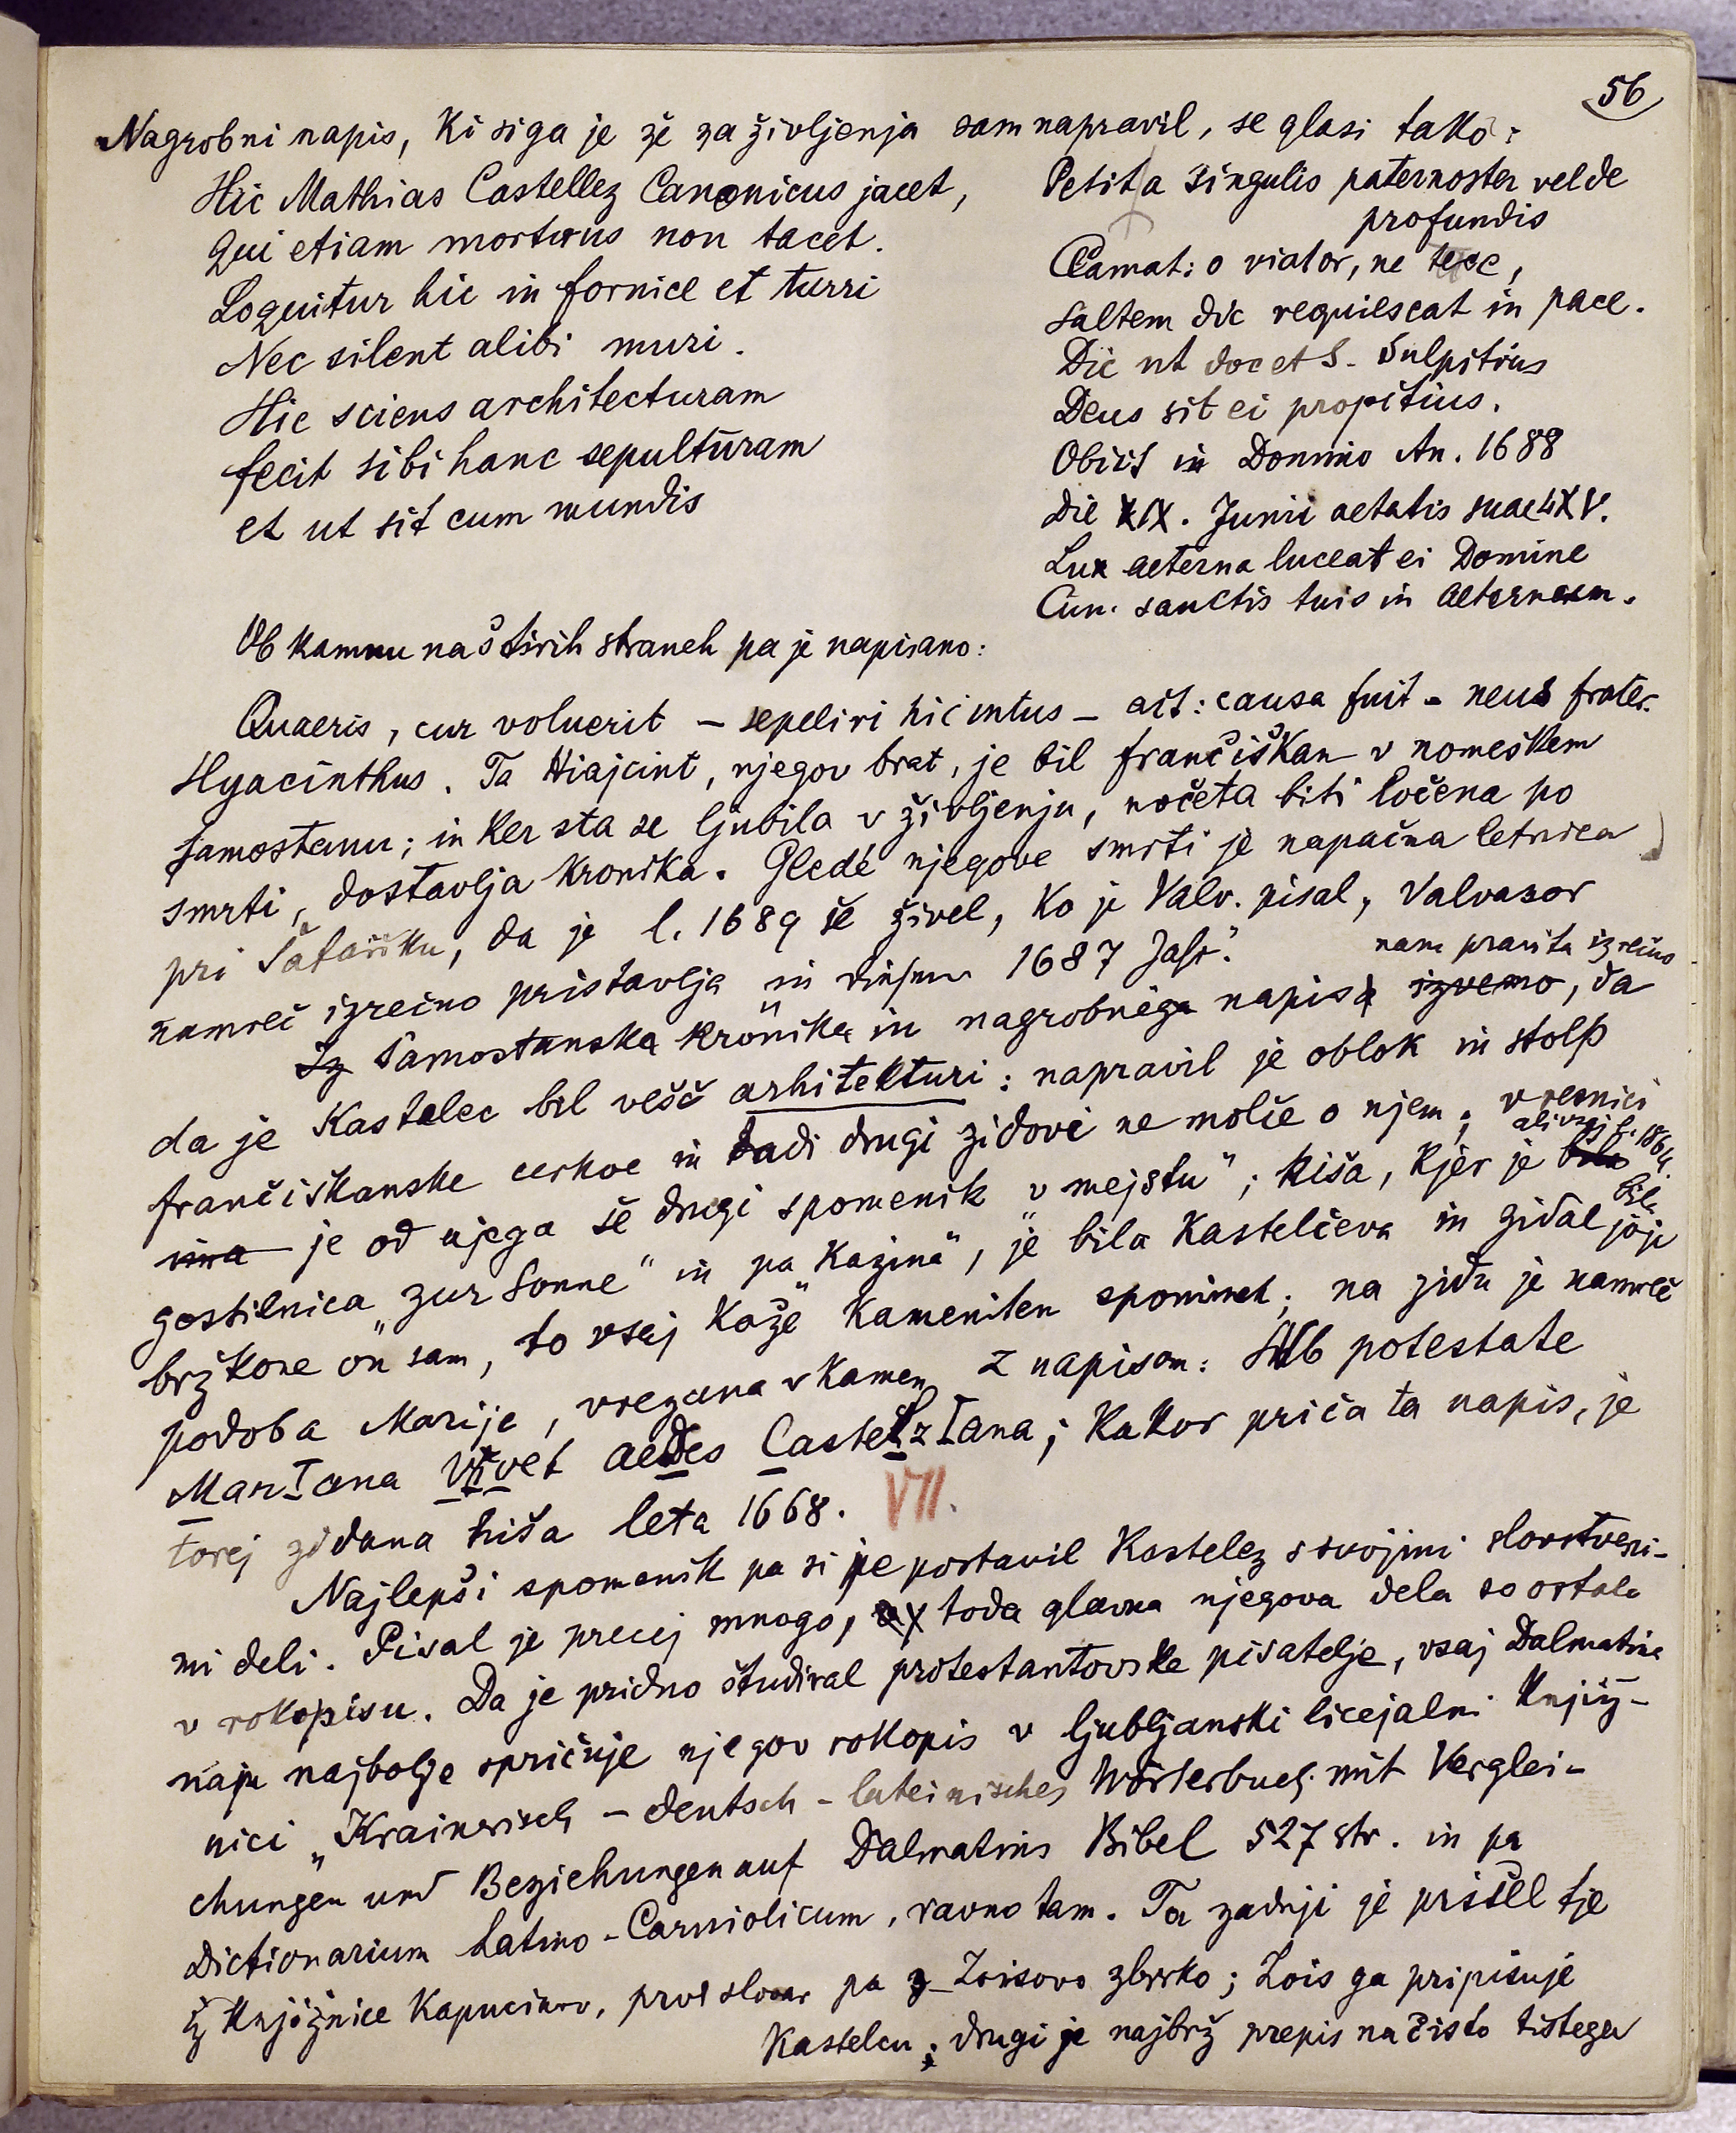 56
Nagrobni napis, ki si ga je že za življenja sam napravil, se glasi tako:
Hic Mathias Castellez Canonicus jacet,
Qui etiam mortuus non tacet.
Loquitur hic in fornice et turri
Nec silent alibi muri.
Hic sciens architecturam
fecit sibi hanc sepulturam
et ut sit cum mundis
Petit a singulis paternoster vel de
profundis
Clamat: o viator, ne tace,
saltem dic requiescat in pace.
Dic ut docet S. Sulpitius
Deus sit ei propitius.
Obiit in Domino An. 1688
Die XIX. Junii aetatis suae LXV.
Lux aeterna luceat ei Domine
Cum sanctis tuis in aeternum.
Ob kamnu na štirih straneh pa je napisano:
Quaeris, cur voluerit – sepeliri hic intus – ait: causa fuit – meus frater
Hyacinthus. Ta Hiajcint, njegov brat, je bil frančiškan v nomeškem
samostanu; in ker sta se ljubila v življenju, nočeta biti ločena po
smrti, dostavlja kronika. Gledé njegove smrti je napačna letnica
pri Šafařiku, da je l. 1689 še živel, ko je Valv. pisal, Valvasor
namreč izrečno pristavlja „in diesem 1687 Jahr."
nam pravita izrečno
Iz Samostanska kronika in nagrobnega napisa izvemo, da
da je Kastelec bil vešč arhitekturi: napravil je oblok in stolp
frančiškanske cerkve in tadi drugi zidovi ne molče o njem; v resnici
ima je od njega še drugi spomenik „v mejstu"; hiša, kjer je bila
ali vsaj l. 1864 bila
gostilnica „zur Sonne" in pa „Kazina", je bila Kastelčeva in zidal jo je
bržkone on sam, to vsaj kaže kameniten spominek; na zidu je namreč
podoba Marije, vrezana v kamen z napisom: Sub potestate
MarIana VIvet aeDes CasteLzIana; kakor priča ta napis, je
torej zidana hiša leta 1668. VII.
Najlepši spomenik pa si je postavil Kastelez s svojimi slovstveni-
mi deli. Pisal je precej mnogo, toda glavna njegova dela so ostala
v rokopisu. Da je pridno študiral protestantovske pisatelje, vsaj Dalmatina
naju najbolje spričuje njegov rokopis v ljubljanski licejalni knjiž-
nici „Krainerisch – deutsch – lateinisches Wörterbuch mit Verglei-
chungen und Beziehungen auf Dalmatins Bibel 527 str. in pa
Dictionarium Latino-Carniolicum, ravno tam. Ta zadnji je prišel tje
iz knjižnice Kapucinov, prvi slovar pa z Zoisovo zbirko; Zois ga pripisuje
Kastelcu; drugi je najbrž prepis na čisto tistega